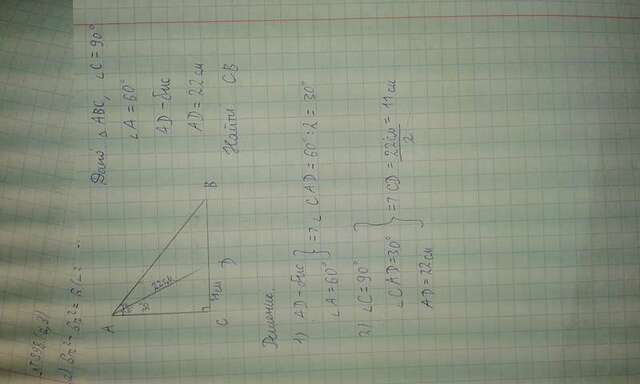 Дано: △ ABC, ∠C = 90°
∠A = 60°
AD - бис
AD = 22 см
Найти CB
A
B
C
D
30°
22 см
11 см
Решение.
1) AD - бис
∠A = 60° } => ∠CAD = 60° : 2 = 30°
2) ∠C = 90°
∠CAD = 30° } => CD = 22 см / 2 = 11 см
AD = 22 см